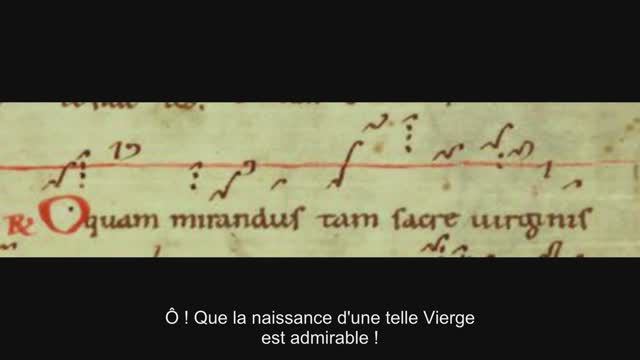 R O quam mirandus tam sacre uirginis
Ô ! Que la naissance d'une telle Vierge
est admirable !